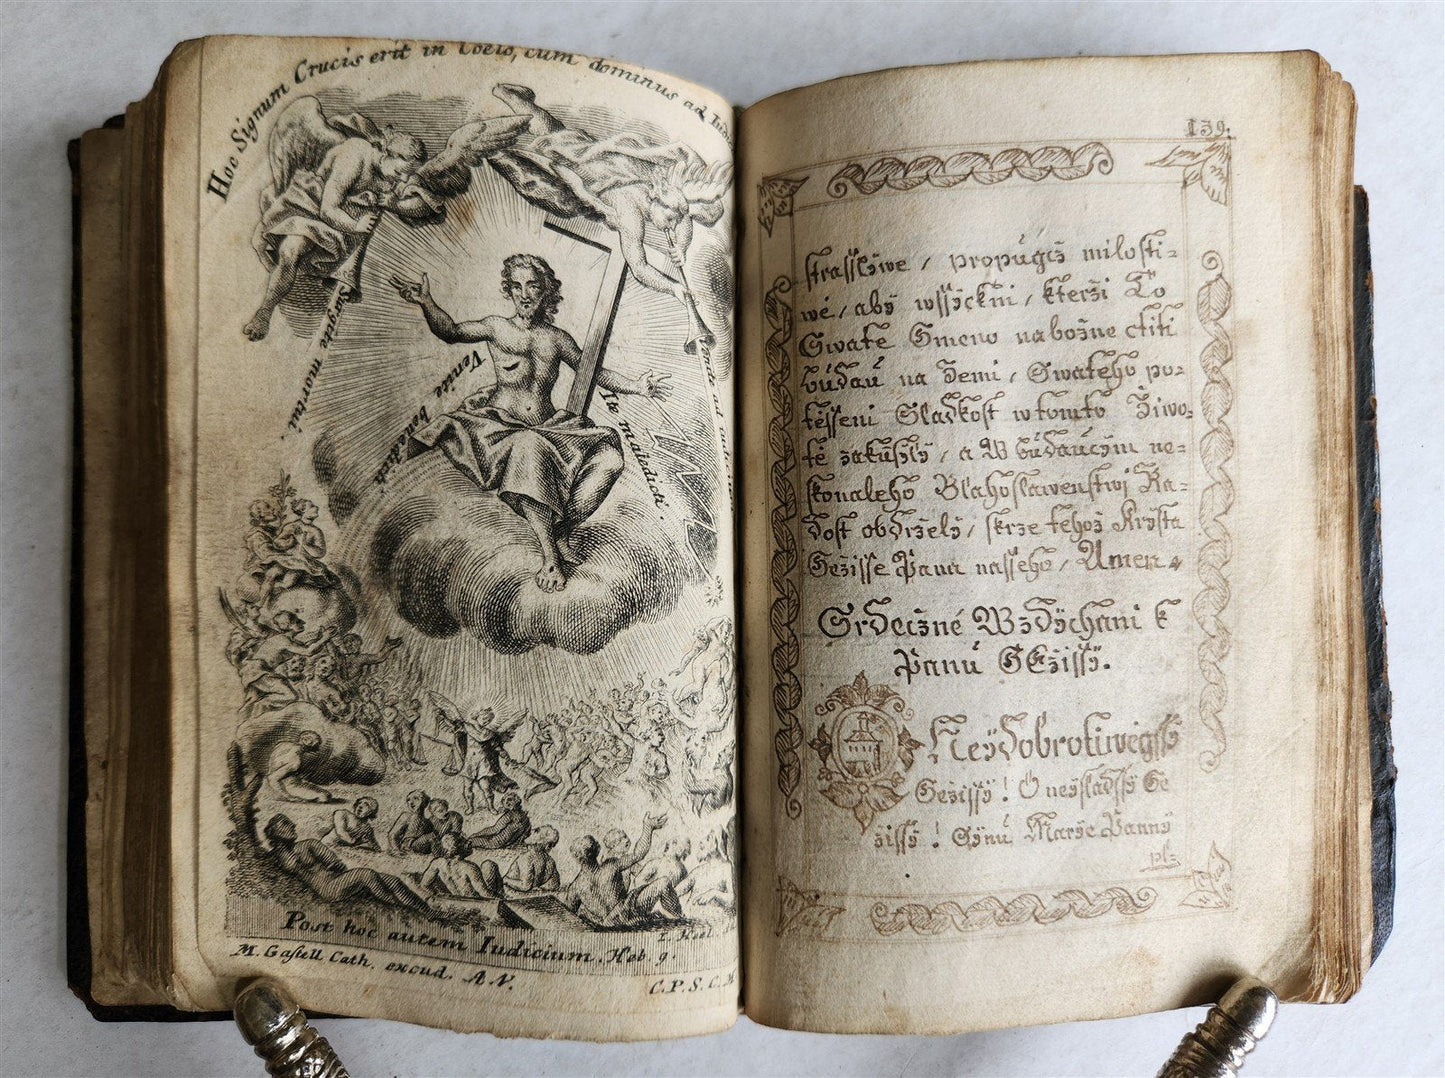 Hoc Signum Crucis erit in Coelo, cum dominus ad Iudi
Surgite mortui.
Venite benedicti
Ite maledicti.
venite ad iudicium
Post hoc autem Iudicium. Heb. 9.
M. Gastell Cath. excud. A.V.
C.P.S.C.M
139.
strassliwe / propugiž milosti=
wé / abÿ wssÿckni / kterži To
Swate Gmeno nabožne ctiti
búdaú na Zemi / Swateho po=
tėsseni Sladkost w tomto Ziwo=
tė zakúsÿlÿ / a W búdaúcÿm ne=
skonaleho Blahoslawenstwj Ra=
dost obdrželÿ / skrze tehož Krÿsta
Gežisse Pana nasseho / Amen.
Srdečné Wzdÿchani k
Panú GEžissÿ.
Neÿdobrotiwegssÿ
Gežissÿ ! O neÿsladssÿ Ge
žissÿ ! Sÿnú Marÿe Pannÿ
plž